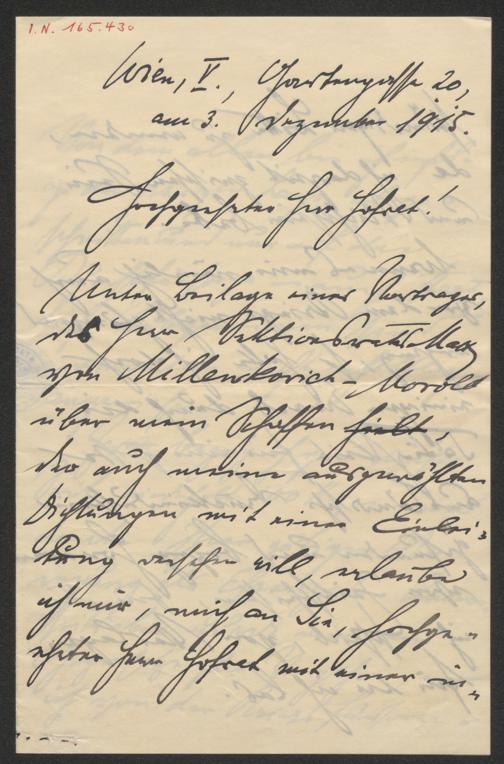 I.N. 165.430
Wien, V., Gartengasse 20,
am 3. Dezember 1915.
Hochgeehrter Herr Hofrat!
Unter Beilage eines Vortrages,
des Herr Sektionsrats Max
von Millenkovich-Morold
über mein Schaffen hielt,
der auch meine ausgewählten
Dichtungen mit einer Einlei-
tung versehen will, erlaube
ich mir, mich an Sie, hochge-
ehrter Herr Hofrat mit einer in-